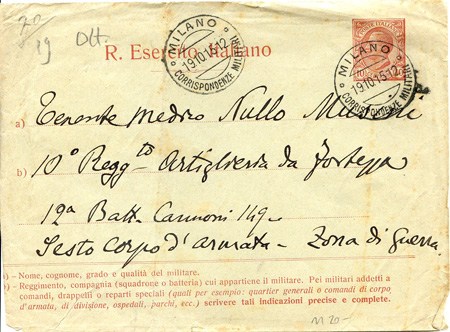 20
19 Ott.
R. Esercito Italiano
MILANO
19.10.15.12
CORRISPONDENZE MILITARI
POSTE ITALIANE
MILANO
19.10.15-12
CORRISPONDENZE MILITARI
a) Tenente medico Nullo
b) 10° Regg.to Artiglieria da fortezza
12a Batt. Cannoni 149-
Sesto corpo d'armata - Zona di guerra
a) - Nome, cognome, grado e qualità del militare.
b) - Reggimento, compagnia (squadrone o batteria) cui appartiene il militare. Pei militari addetti a
comandi, drappelli o reparti speciali (quali per esempio: quartier generali o comandi di corpo
d'armata, di divisione, ospedali, parchi, ecc.) scrivere tali indicazioni precise e complete.